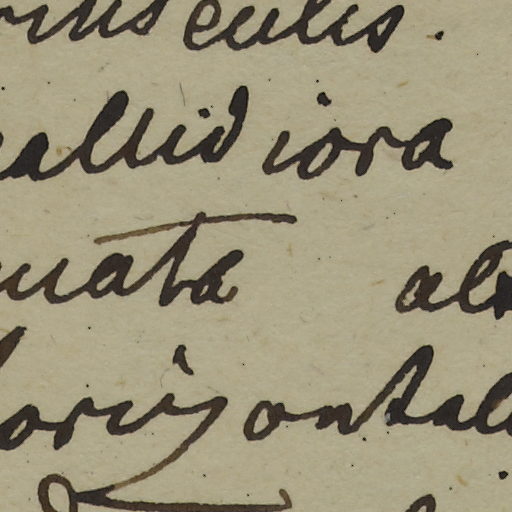 usculis.
allidiora
uata al
horizontal